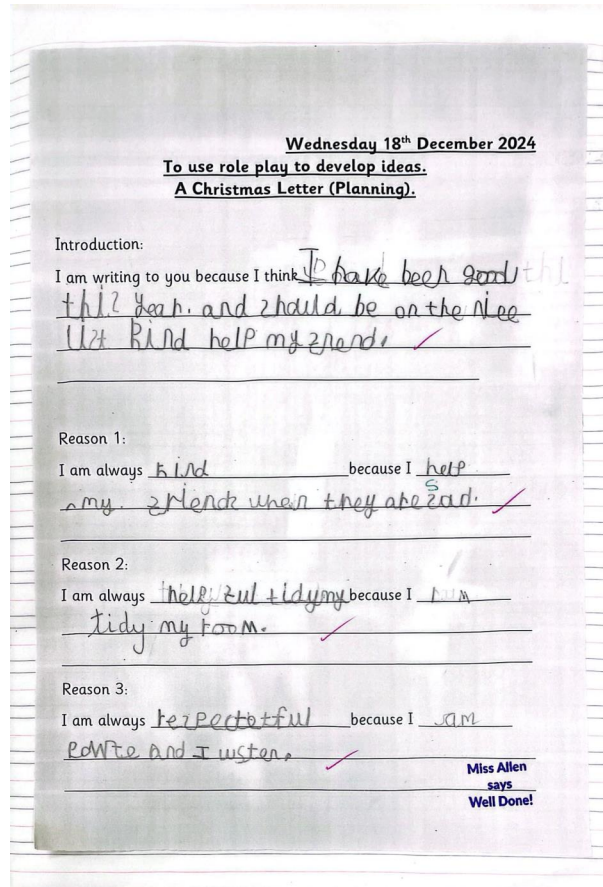 Wednesday 18th December 2024
To use role play to develop ideas.
A Christmas Letter (Planning).
Introduction:
I am writing to you because I think I have been good
this year. and should be on the nice
list kind help my frend.
Reason 1:
I am always kind because I help
s
my. friends when they are sad.
Reason 2:
I am always helpful tidy my because I
tidy my room.
Reason 3:
I am always respectotful because I am
polite and I listen.
Miss Allen
says
Well Done!